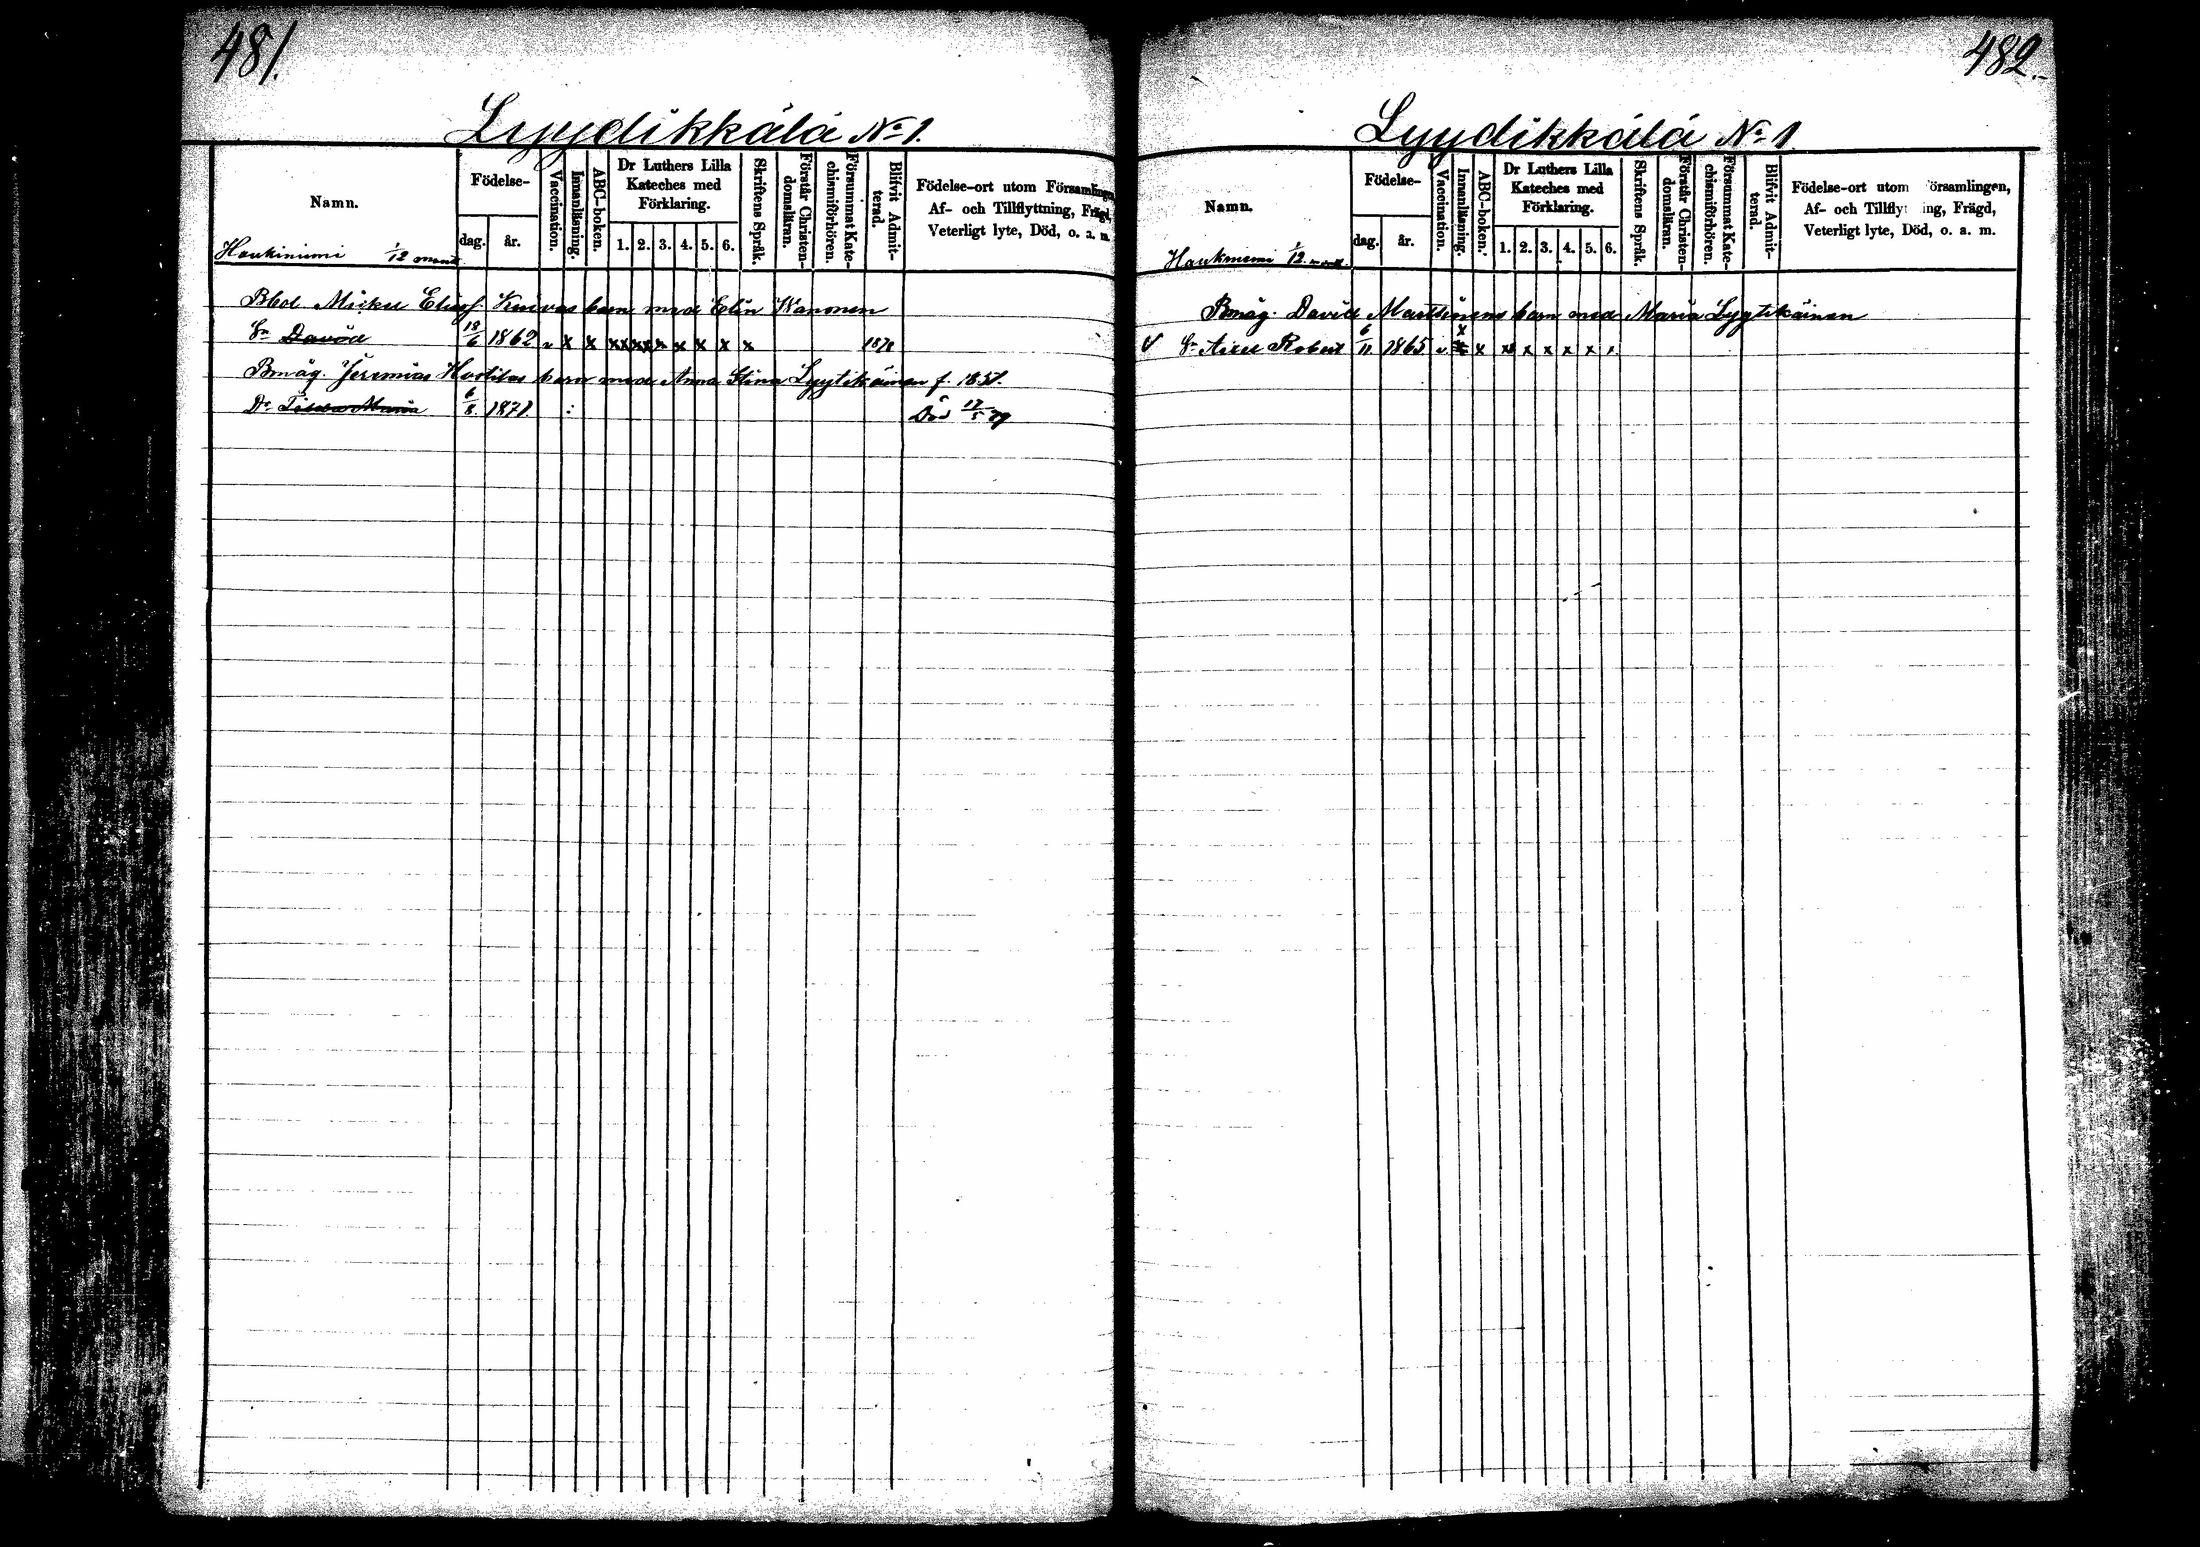 481.
Lyydikkälä No 1.
Namn.
Födelse-
dag. år.
Vaccination.
Innanläsning.
ABC-boken.
Dr Luthers Lilla
Kateches med
Förklaring.
1. 2. 3. 4. 5. 6.
Skriftens Språk.
Förstår Christen-
domsläran.
Försummat Kate-
chismiförhören.
Blifvit Admit-
terad.
Födelse-ort utom Församlingen,
Af- och Tillflyttning, Frägd,
Veterligt lyte, Död, o. a. m.
Haukiniemi 1/12 mantl
Bbd Mickel Eliasf. Knivas barn med Elin Wanonen
Sn David 18/6 1862 v x x x x x x x x x x x 1878
Bmåg. Jeremias barn med Anna Stina Lyytikäinen f. 1851.
Dr Maria 6/8 1871 Död 17/5 79
482.
Lyydikkälä No 1.
Namn.
Födelse-
dag. år.
Vaccination.
Innanläsning.
ABC-boken.
Dr Luthers Lilla
Kateches med
Förklaring.
1. 2. 3. 4. 5. 6.
Skriftens Språk.
Förstår Christen-
domsläran.
Försummat Kate-
chismiförhören.
Blifvit Admit-
terad.
Födelse-ort utom örsamlingen,
Af- och Tillfly ing, Frägd,
Veterligt lyte, Död, o. a. m.
Haukiniemi 1/12 mantl.
Bmåg. David Marttinens barn med Maria Lyytikäinen
v Sn Axel Robert 6/11 1865 v. x x x x x x x